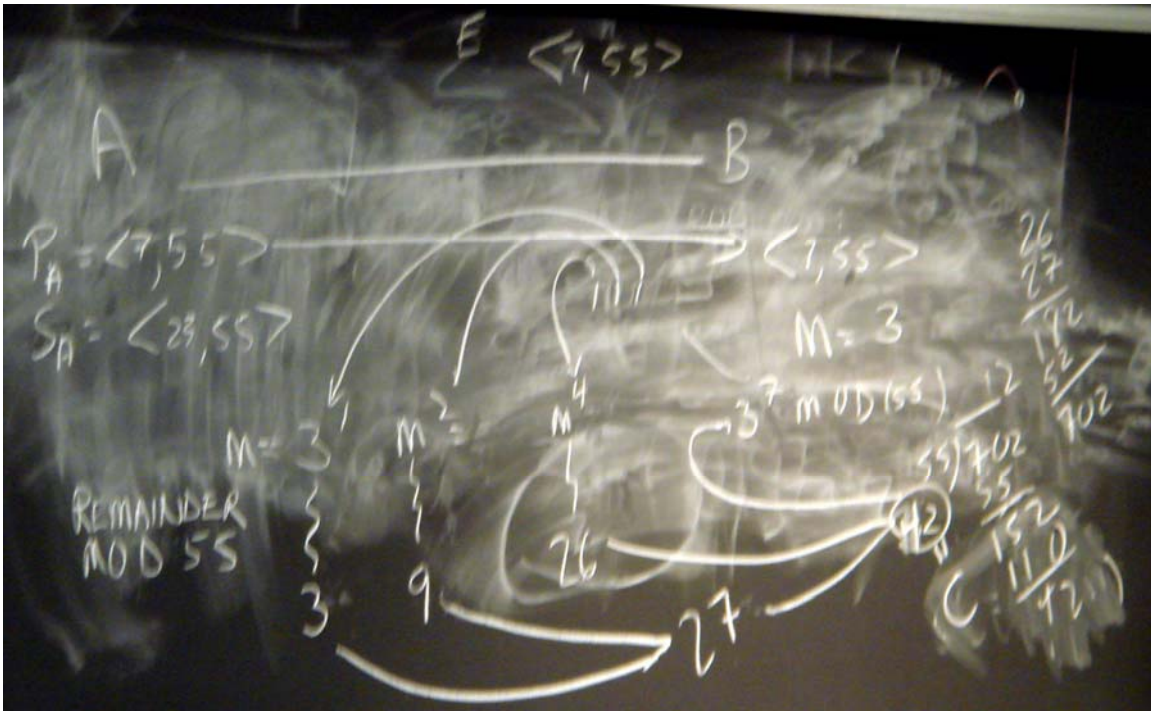 E <7,55>
A B
P_A = <7,55> <7,55>
S_A = <23,55> M = 3
111
M = 3^1 M^2 = M^4 3^7 MOD(55)
REMAINDER
MOD 55
3 9 26 27 42
C
26
27
182
52
702
12
55)702
55
152
110
42